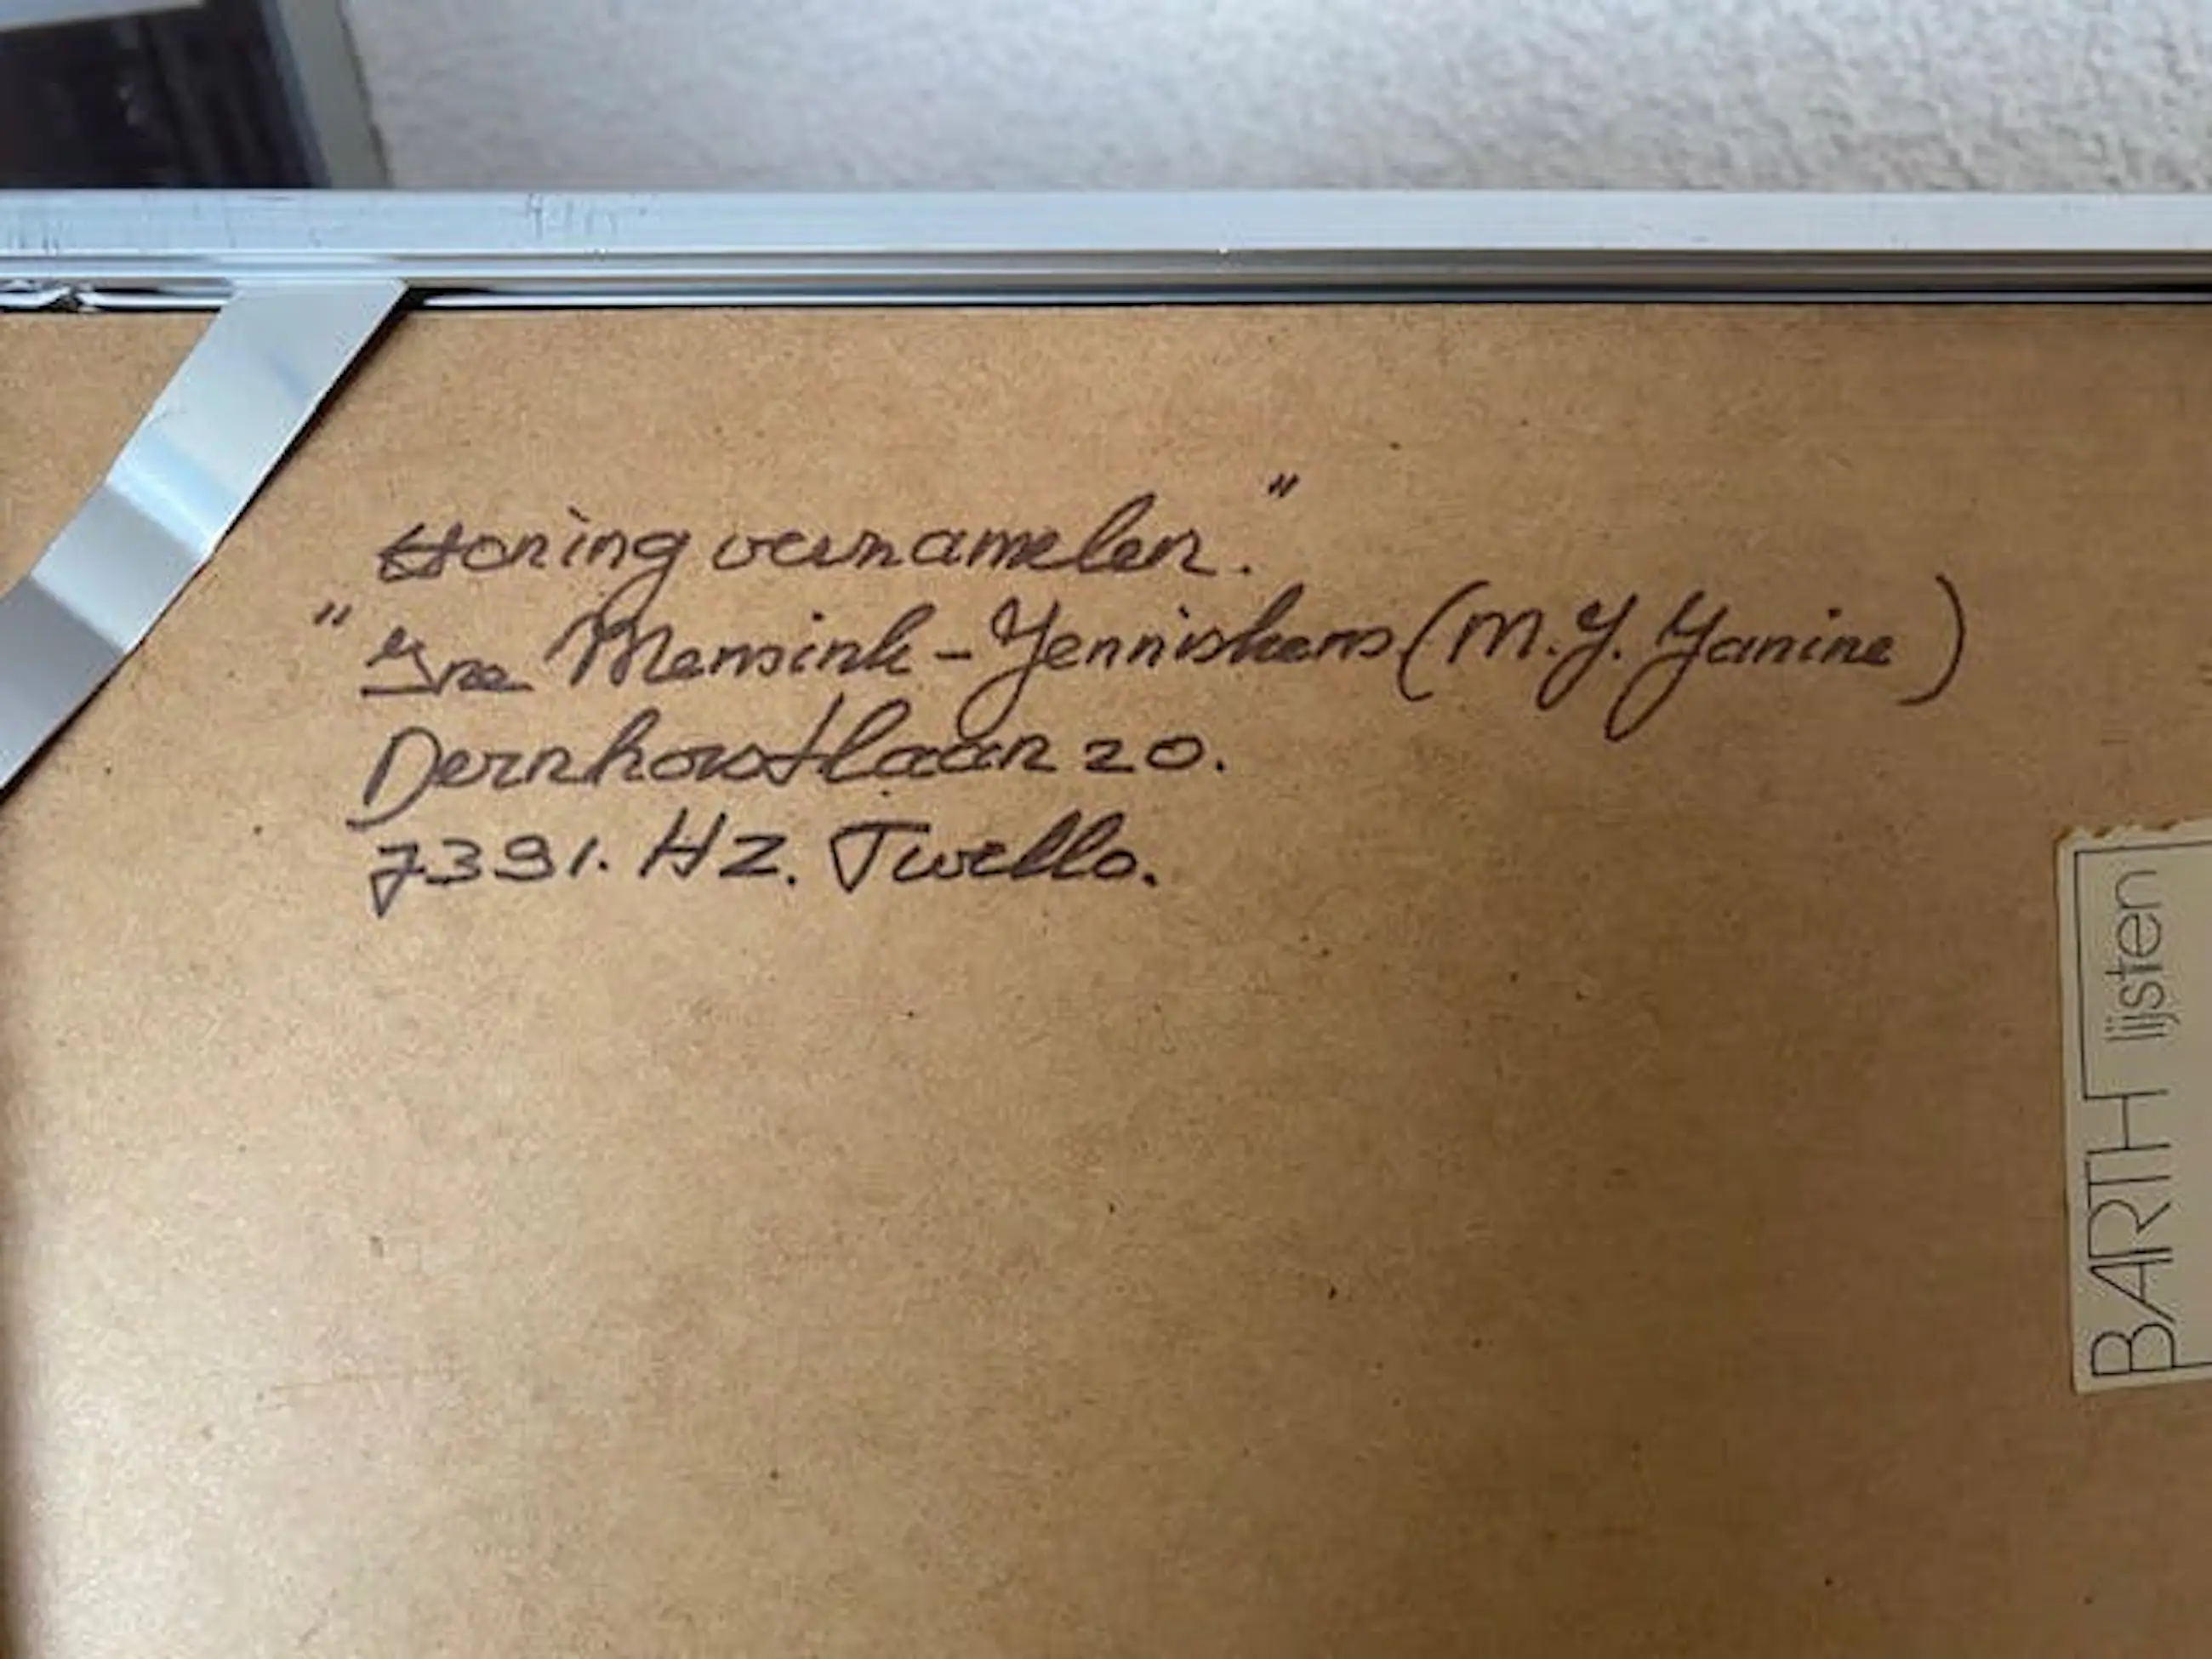 Honing verzamelen."
" Ine Mensink-Jenniskens (M.J. Janine)
Dernhorstlaan 20.
7391. HZ. Twello.
BARTH lijsten